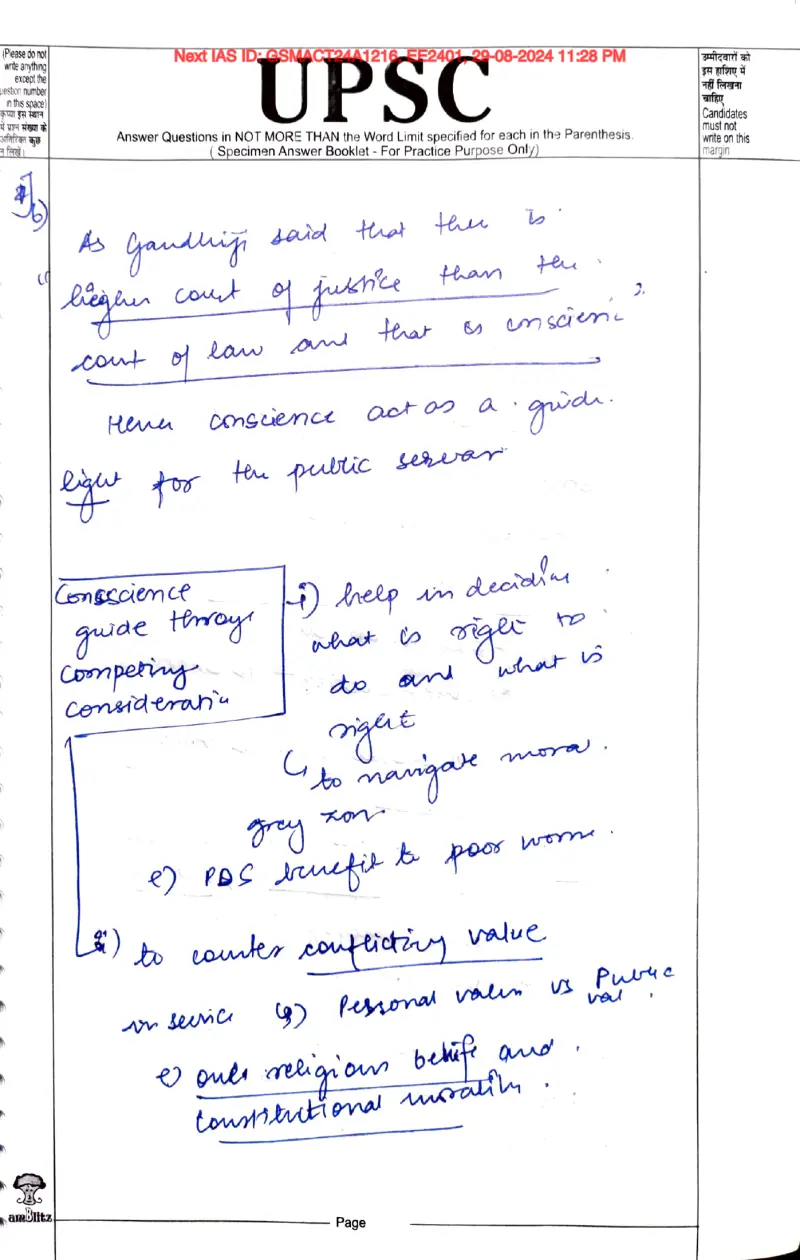 Next IAS ID: GSMACT24A1216_EE2401_29-08-2024 11:28 PM
UPSC
Answer Questions in NOT MORE THAN the Word Limit specified for each in the Parenthesis.
( Specimen Answer Booklet - For Practice Purpose Only)
(Please do not
write anything
except the
question number
in this space)
कृपया इस स्थान
में प्रश्न संख्या के
अतिरिक्त कुछ
न लिखें।
उम्मीदवारों को
इस हाशिए में
नहीं लिखना
चाहिए
Candidates
must not
write on this
margin
b)
As Gandhiji said that there is
" higher court of justice than the
court of law and that is conscience "
Hence conscience act as a guide
light for the public servar
Consscience
guide through
competing
consideratin
i) help in deciding
what is right to
do and what is
right
↳ to navigate mora
grey zon
e) PDS benefit to poor
ii) to counter conflicting value
in service eg) Personal values vs Public
val
e) one's religious belief and
constitutional morality.
amBlitz
Page